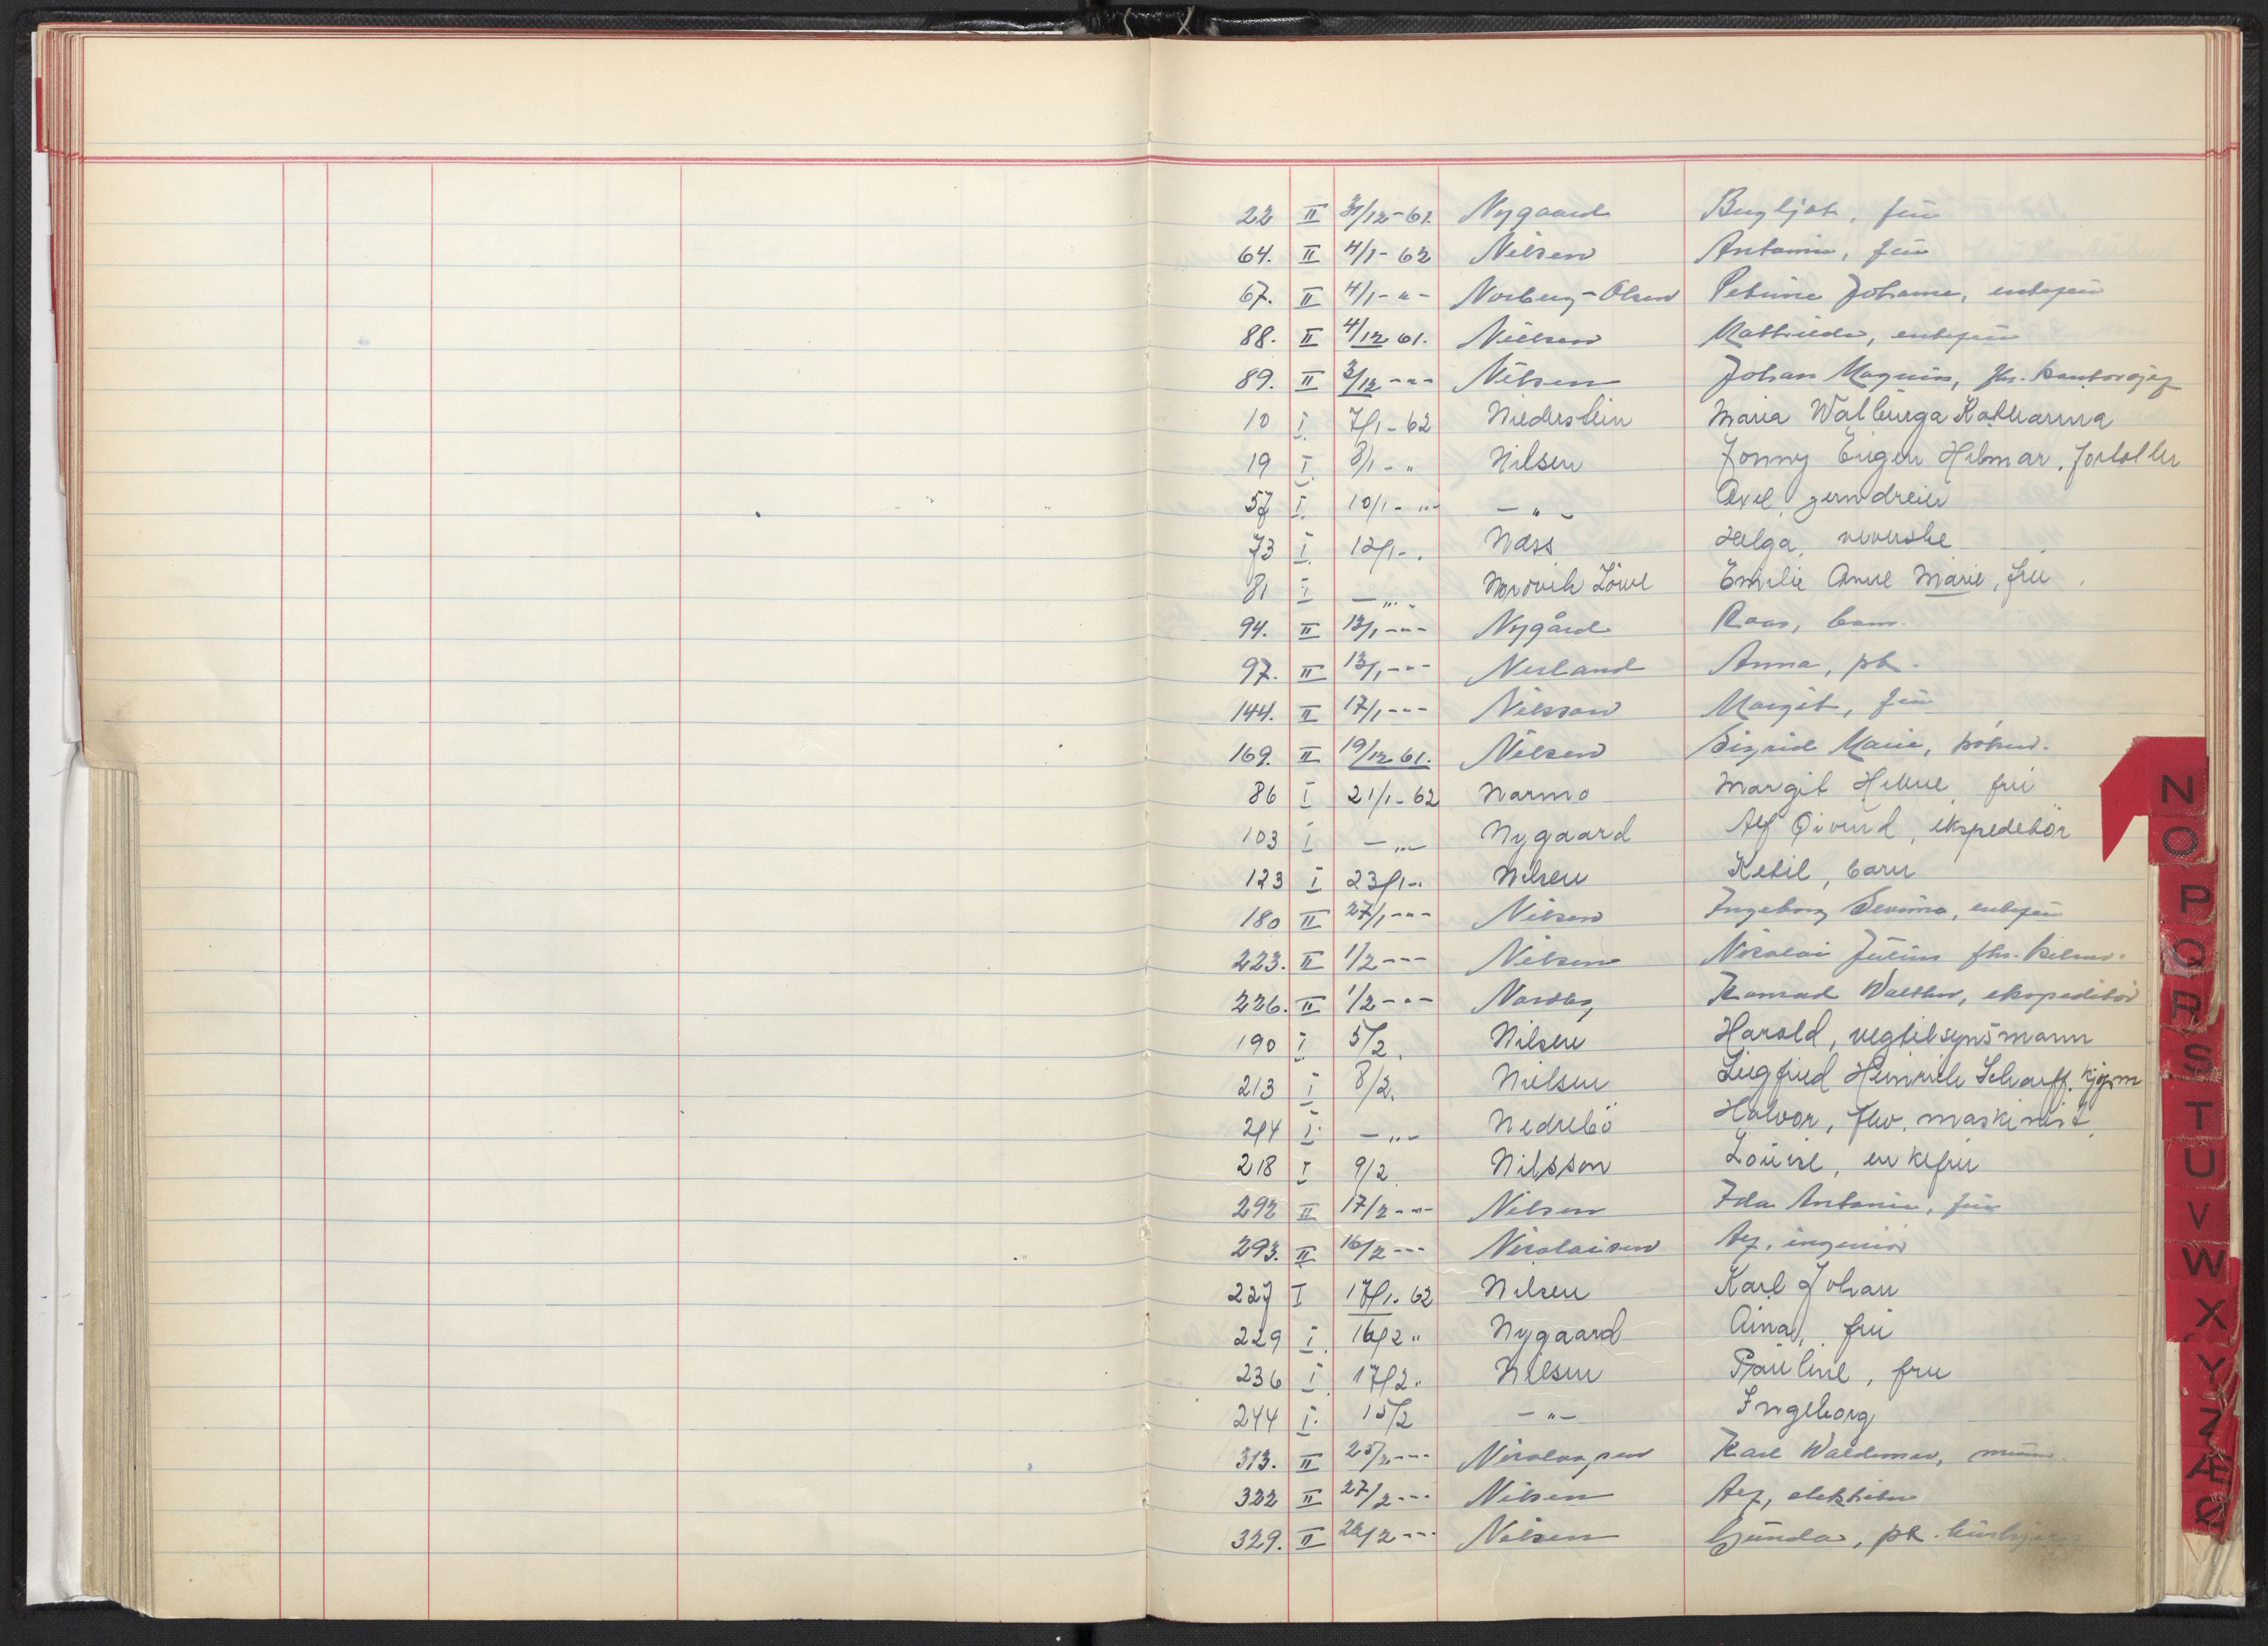 22 II 31/12-61. Nygaard Bergljot, frü
64. II 4/1-62 Nilsen Antonie, frü
67. II 4/1-"- Norberg-Olsen Petrine Johanne, enkefrü
88. II 4/12 61. Nielsen Mathilde, enkefrü
89. II 3/12-"- Nilsen Johan Magnus, fhv. kontorsjef
10 I 7/1-62 Niederstein Maria Walburga Katharina
19 I 8/1-" Nilsen Jonny Eugen Hilmar, fortoller
57 I 10/1-"- -"- Axel, jerndreier
73 I 12/1-. Næss Helga, veverske
81 I -"- Löwe Emilie Anne Marie, frü
94. II 12/1-"- Nygård Roar, barn.
97. II 13/1-"- Nerland Anna, pk.
144. II 17/1-"- Nilsson Margit, frü
169. II 19/12 61. Nilsen Sigrid Marie,
86 I 21/1-62 Narmo Margit Helene frü
103 I -"- Nygaard Alf Öivind, ekspeditör
123 I 23/1-. Nilsen Ketil, barn
180 II 27/1-"- Nilsen Ingeborg Severine, enkefrü
223. II 1/2--- Nilsen Nicolai Julius fhv.
226. II 1/2-"- Nordby Konrad Walther, ekspeditör
190 I 5/2. Nilsen Harald, vegtilsynsmann
213 I 8/2. Nielsen Siegfried Heinrich Scharff, kjøpm
214 I -"- Nedrebö Halvor, fhv. maskinist
218 I 9/2. Nilsson Louise, enkefrü
292 II 17/2-"- Nilsen Ida Antonie, frü
293. II 16/2--- Nicolaisen Alf, ingeniör
227 I 17/1.62 Nilsen Karl Johan
229 I 16/2" Nygaard Aina, frü
236 I 17/2" Nilsen Pauline, fru
244 I 15/2 -"- Ingeborg
313. II 25/2--- Nicolaysen Karl Waldemar,
322 II 27/2--- Nilsen Alf, elektriker
329. II 26/2--- Nilsen Gunda, pk.
N
O
P
Q
R
S
T
U
V
W
X
Y
Z
Æ
Ø